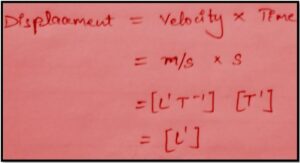 Displacement = Velocity × Time
= m/s × s
= [L¹ T⁻¹] [T¹]
= [L¹]